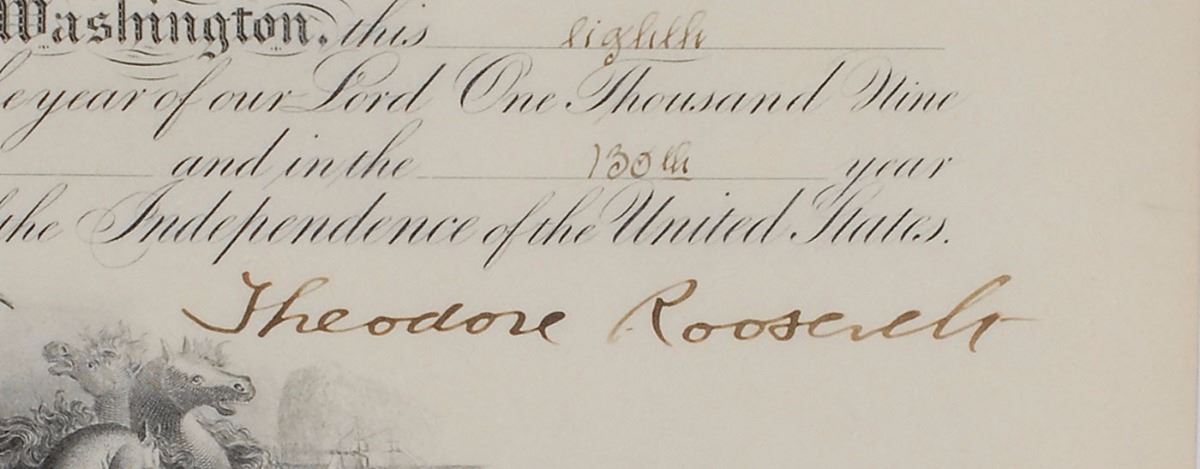 Washington, this eighth
e year of our Lord One Thousand Nine
and in the 130th year
the Independence of the United States.
Theodore Roosevelt